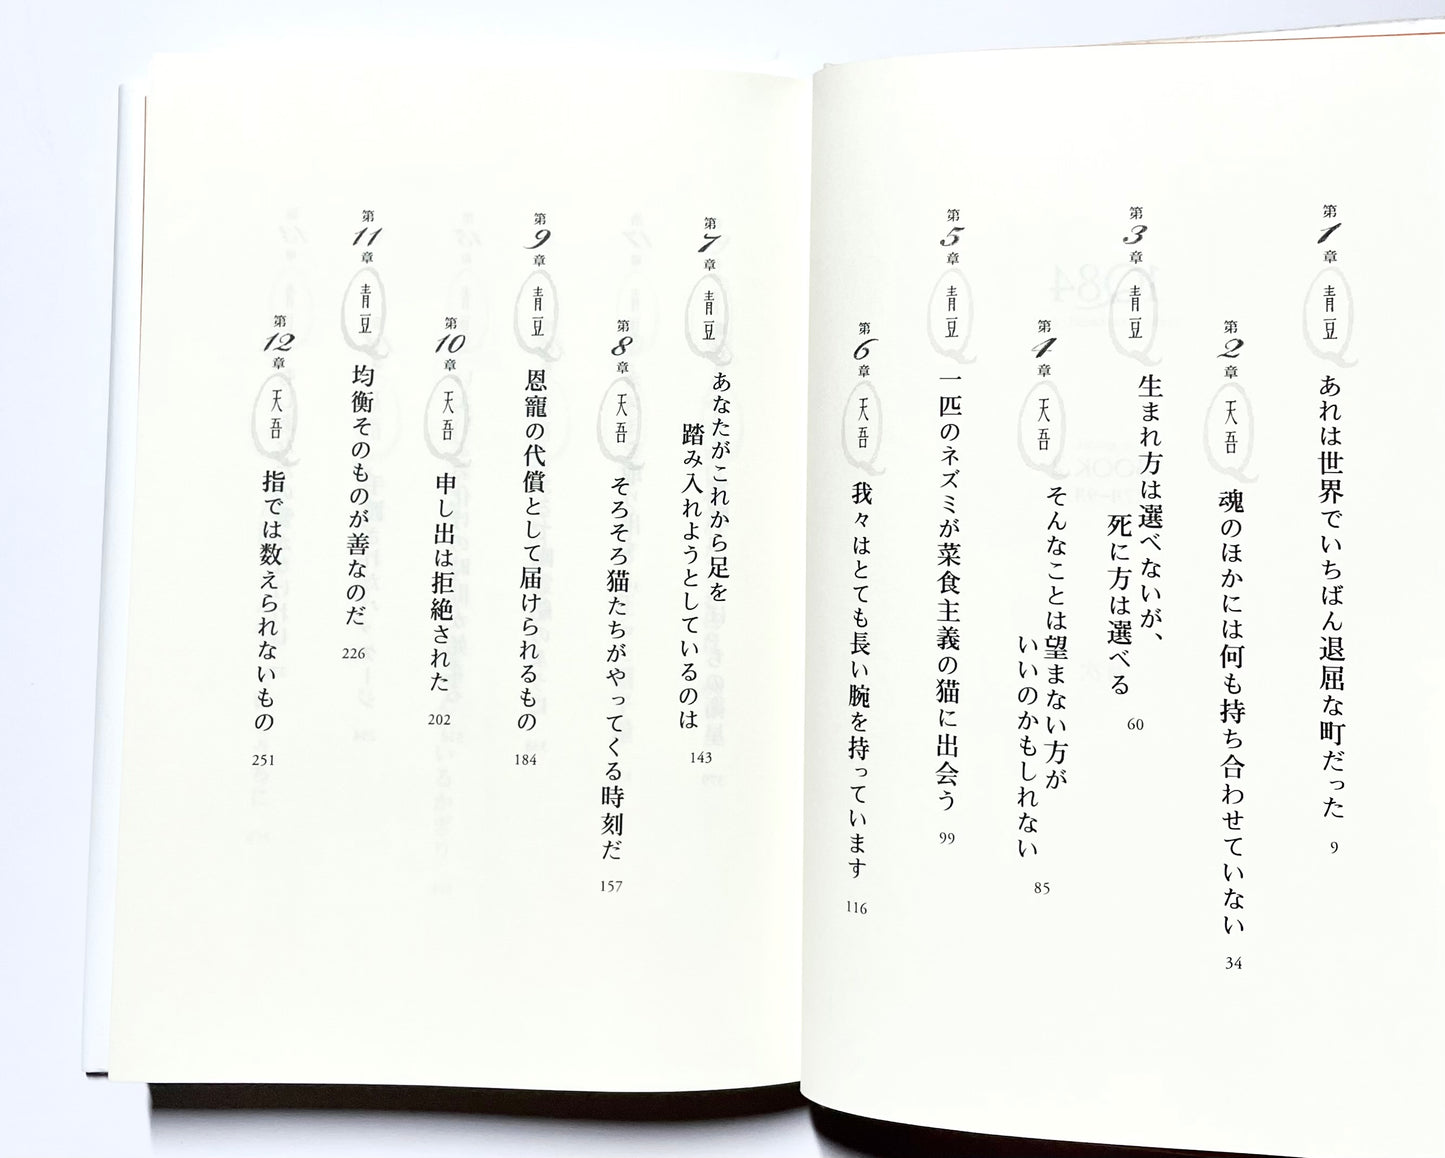 第1章 青豆 あれは世界でいちばん退屈な町だった 9
第2章 天吾 魂のほかには何も持ち合わせていない 34
第3章 青豆 生まれ方は選べないが、
死に方は選べる 60
第4章 天吾 そんなことは望まない方が
いいのかもしれない 85
第5章 青豆 一匹のネズミが菜食主義の猫に出会う 99
第6章 天吾 我々はとても長い腕を持っています 116
第7章 青豆 あなたがこれから足を
踏み入れようとしているのは 143
第8章 天吾 そろそろ猫たちがやってくる時刻だ 157
第9章 青豆 恩寵の代償として届けられるもの 184
第10章 天吾 申し出は拒絶された 202
第11章 青豆 均衡そのものが善なのだ 226
第12章 天吾 指では数えられないもの 251